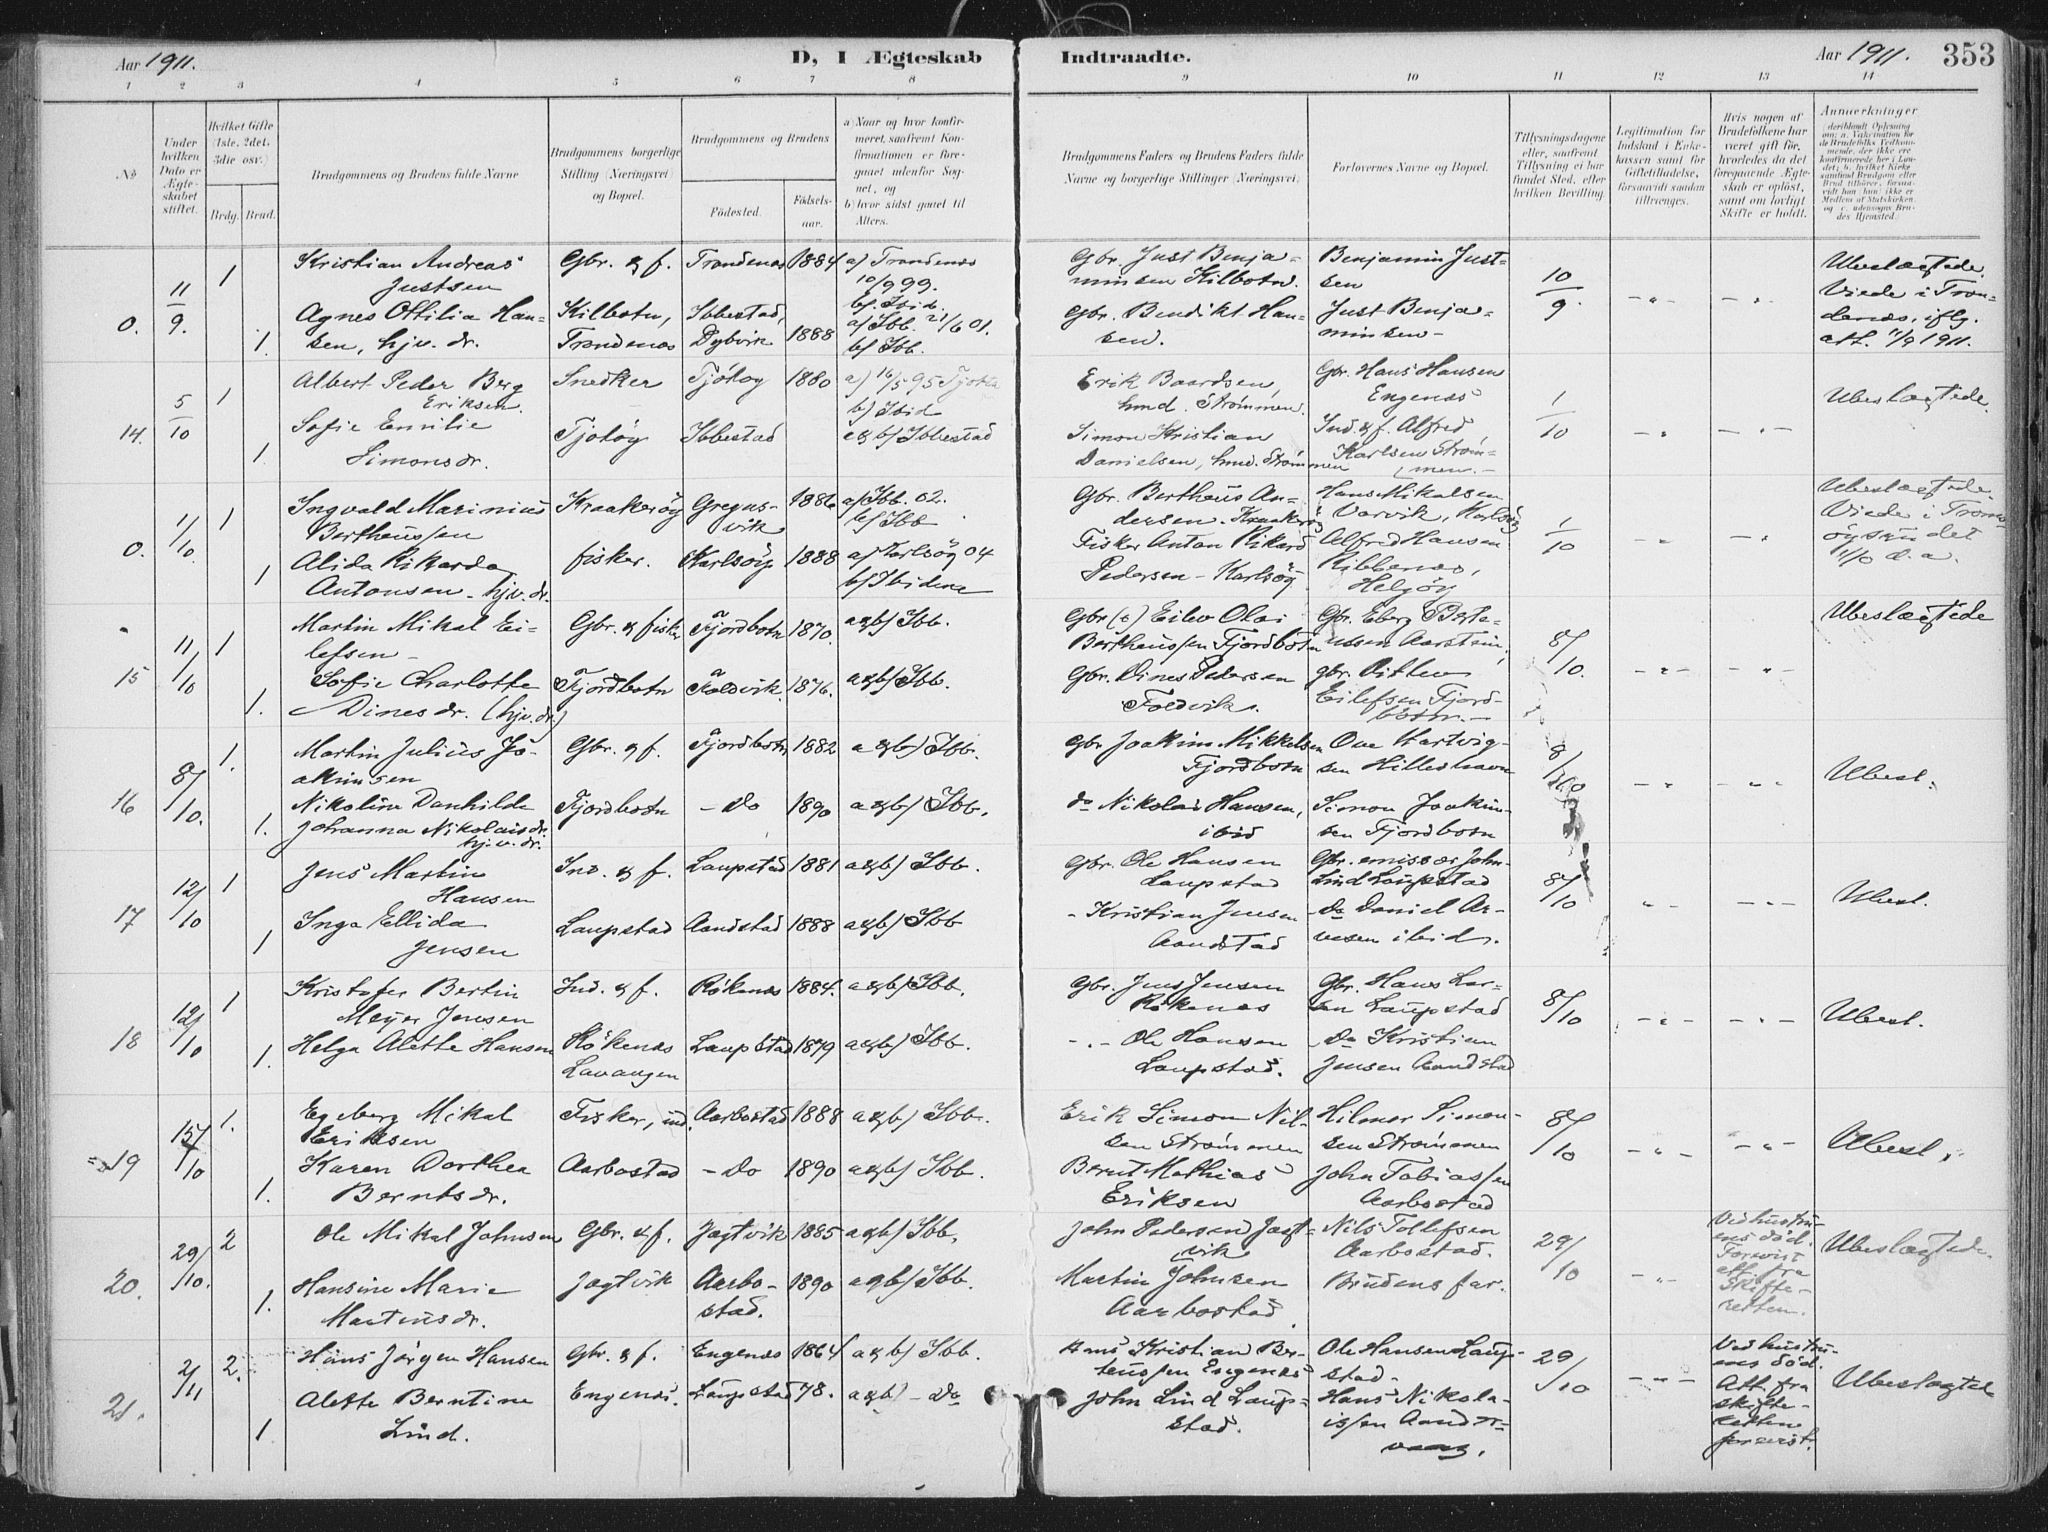 Aar 1911.
D, I Ægteskab
Indtraadte.
Aar 1911.
353
1 2 3 4 5 6 7 8 9 10 11 12 13 14
No
Under hvilken Dato er Ægteskabet stiftet.
Hvilket Gifte (1ste, 2det, 3die osv.)
Brdg. Brud.
Brudgommens og Brudens fulde Navne
Brudgommens borgerlige Stilling (Næringsvei) og Bopæl.
Brudgommens og Brudens
Fødested.
Fødselsaar.
a) Naar og hvor konfirmeret, saafremt Konfirmationen er foregaaet udenfor Sognet, og
b) hvor sidst gaaet til Alters.
Brudgommens Faders og Brudens Faders fulde Navne og borgerlige Stillinger (Næringsvei)
Forlovernes Navne og Bopæl.
Tillysningsdagene eller, saafremt Tillysning ei har fundet Sted, efter hvilken Bevilling.
Legitimation for Indskud i Enkekassen samt for Giftetilladelse, forsaavidt saadan tiltrænges.
Hvis nogen af Brudefolkene har været gift før, hvorledes da det foregaaende Ægteskab er opløst, samt om lovligt Skifte er holdt.
Anmærkninger
0. 11/9. 1
Kristian Andreas Justsen
Gbr. & f.
Trondenæs 1884
a) Trondenæs 10/9 99.
b) Ibid.
Gbr. Just Benjaminsen Kilbotn.
Benjamin Justsen
10/9.
Ubeslægtede. Viede i Trondenæs, iflg. att. 11/9 1911.
1.
Agnes Ottilia Hansen, hjv. dr.
Kilbotn, Trondenæs
Ibbestad, Dybvik 1888
a) Ibb. 21/6 01.
b) Ibb.
Gbr. Bendikt Hansen.
Just Benjaminsen
14. 5/10 1
Albert Peder Berg Eriksen.
Snedker
Tjötöy 1880
a) 16/5 95 Tjøtta
b) Ibid
Erik Baardsen, hmd. Strømmen.
Gbr. Hans Hansen Engenæs
1/10
Ubeslægtede.
1.
Sofie Emilie Simonsdr.
Tjötöy
Ibbestad
a & b) Ibbestad
Simon Kristian Danielsen, hmd. Strømmen
Ind. & f. Alfred Karlsen Strømmen.
0. 11/10. 1
Ingvald Marinius Bertheussen
Kraakeröy
Gregusvik 1886
a) Ibb. 02.
b) Ibb
Gbr. Bertheus Andersen. Kraakeröy
Hans Mikalsen Vorvik, Karlsöy
1/10
Ubeslægtede. Viede i Tromsöysundet 11/10 d.a.
1
Alida Rikarda Antonsen - hjv. dr.
fisker.
Karlsöy 1888
a) Karlsöy 04
b) Ibidem
Fisker Anton Rikard Pedersen - Karlsöy
Alfred Hansen Ribbenæs, Helgöy
15 11/10 1
Martin Mikal Eilefsen
Gbr. & fisker
Fjordbotn 1870.
a & b) Ibb.
Gbr (e) Eilev Olai Bertheussen Fjordbotn
Gbr. Eberg Peteussen Aarstein
8/10.
Ubeslægtede
1.
Sofie Charlotte Dinesdr. (hjv. dr.)
Fjordbotn
Foldvik 1876.
a & b) Ibb.
Gbr. Dines Pedersen Foldvik.
gbr. Eilefsen Fjordbotn.
16 8/10. 1.
Martin Julius Joakimsen
Gbr. & f.
Fjordbotn 1882
a & b) Ibb.
Gbr Joakim Mikkelsen Fjordbotn
Ove Hartvigsen Hilleshavn
8/10
Ubesl.
1.
Nikoline Danhilde Johanna Nikolaisdr. hjv. dr.
Fjordbotn
- Do 1890
a & b) Ibb.
do Nikolai Hansen, ibid
Simon Joakimsen Fjordbotn
17 12/10 1
Jens Martin Hansen
Ind. & f.
Laupstad 1881
a & b) Ibb.
Gbr. Ole Hansen Laupstad
Gbr. emissær John Lind Laupstad
8/10
Ubesl.
1
Inga Ellida Jensen
Laupstad
Aandstad 1888
a & b) Ibb
- Kristian Jensen Aandstad
- Do Daniel Arnesen ibid.
18 12/10 1
Kristofer Bertin Meyer Jensen
Ind. & f.
Rökenæs 1884.
a & b) Ibb.
Gbr. Jens Jensen Rökenæs
Gbr. Hans Larsen Laupstad
8/10
Ubesl.
1.
Helga Alette Hansen
Rökenæs Lavangen
Laupstad 1879
a & b) Ibb.
- " - Ole Hansen Laupstad.
- Do Kristian Jensen Aandstad
19 15/10 1.
Egeberg Mikal Eriksen
Fisker, ind.
Aarbostad 1888
a & b) Ibb.
Erik Simon Nilsen Strømmen
Hilmer Simonsen Strømmen
8/10
Ubesl.
1.
Karen Dorthea Berntsdr.
Aarbostad
- Do 1890
a & b) Ibb.
Bernt Mathias Eriksen
John Tobiassen Aarbostad
20. 29/10. 2
Ole Mikal Johnsen
Gbr. & f.
Jagtvik 1885
a & b) Ibb.
John Pedersen Jagtvik
Nils Tollefsen Aarbostad.
29/10
Ved hustruens död. Forevist att. fra Skifteretten.
Ubeslægtede.
1.
Hansine Marie Martinsdr.
Jagtvik
Aarbostad. 1890
a & b) Ibb.
Martin Johnsen Aarbostad
Brudens far.
21. 2/11 2.
Hans Jörgen Hansen
Gbr. & f.
Engenæs 1864
a & b) Ibb.
Hans Kristian Berteussen Engenæs
Ole Hansen Laupstad.
29/10
Ved hustruens död. Att. fra skifteretten forevist.
Ubeslægtede
1
Alette Berntine Lind.
Engenæs.
Laupstad 78.
a & b) - Do
John Lind Laupstad.
Hans Nikolaissen